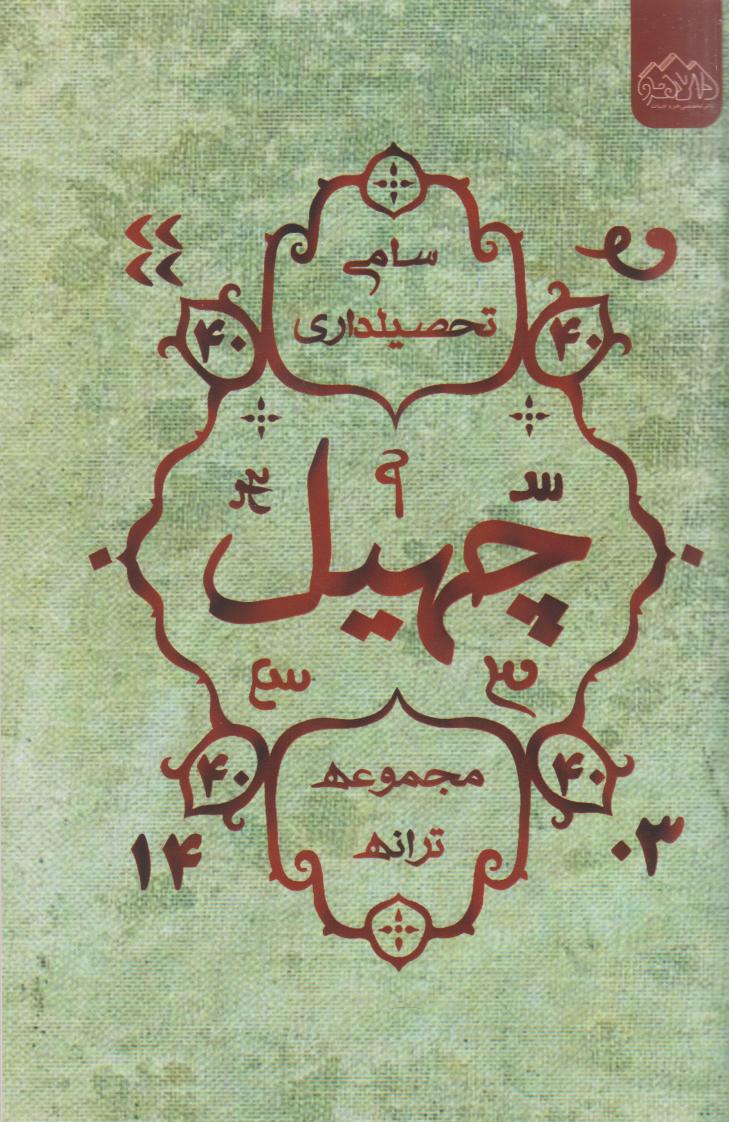 دالاهو
سامی
تحصیلداری
۴۰
۴۰
چهیل
مجموعه
ترانه
۴۰
۴۰
۱۴
۰۳